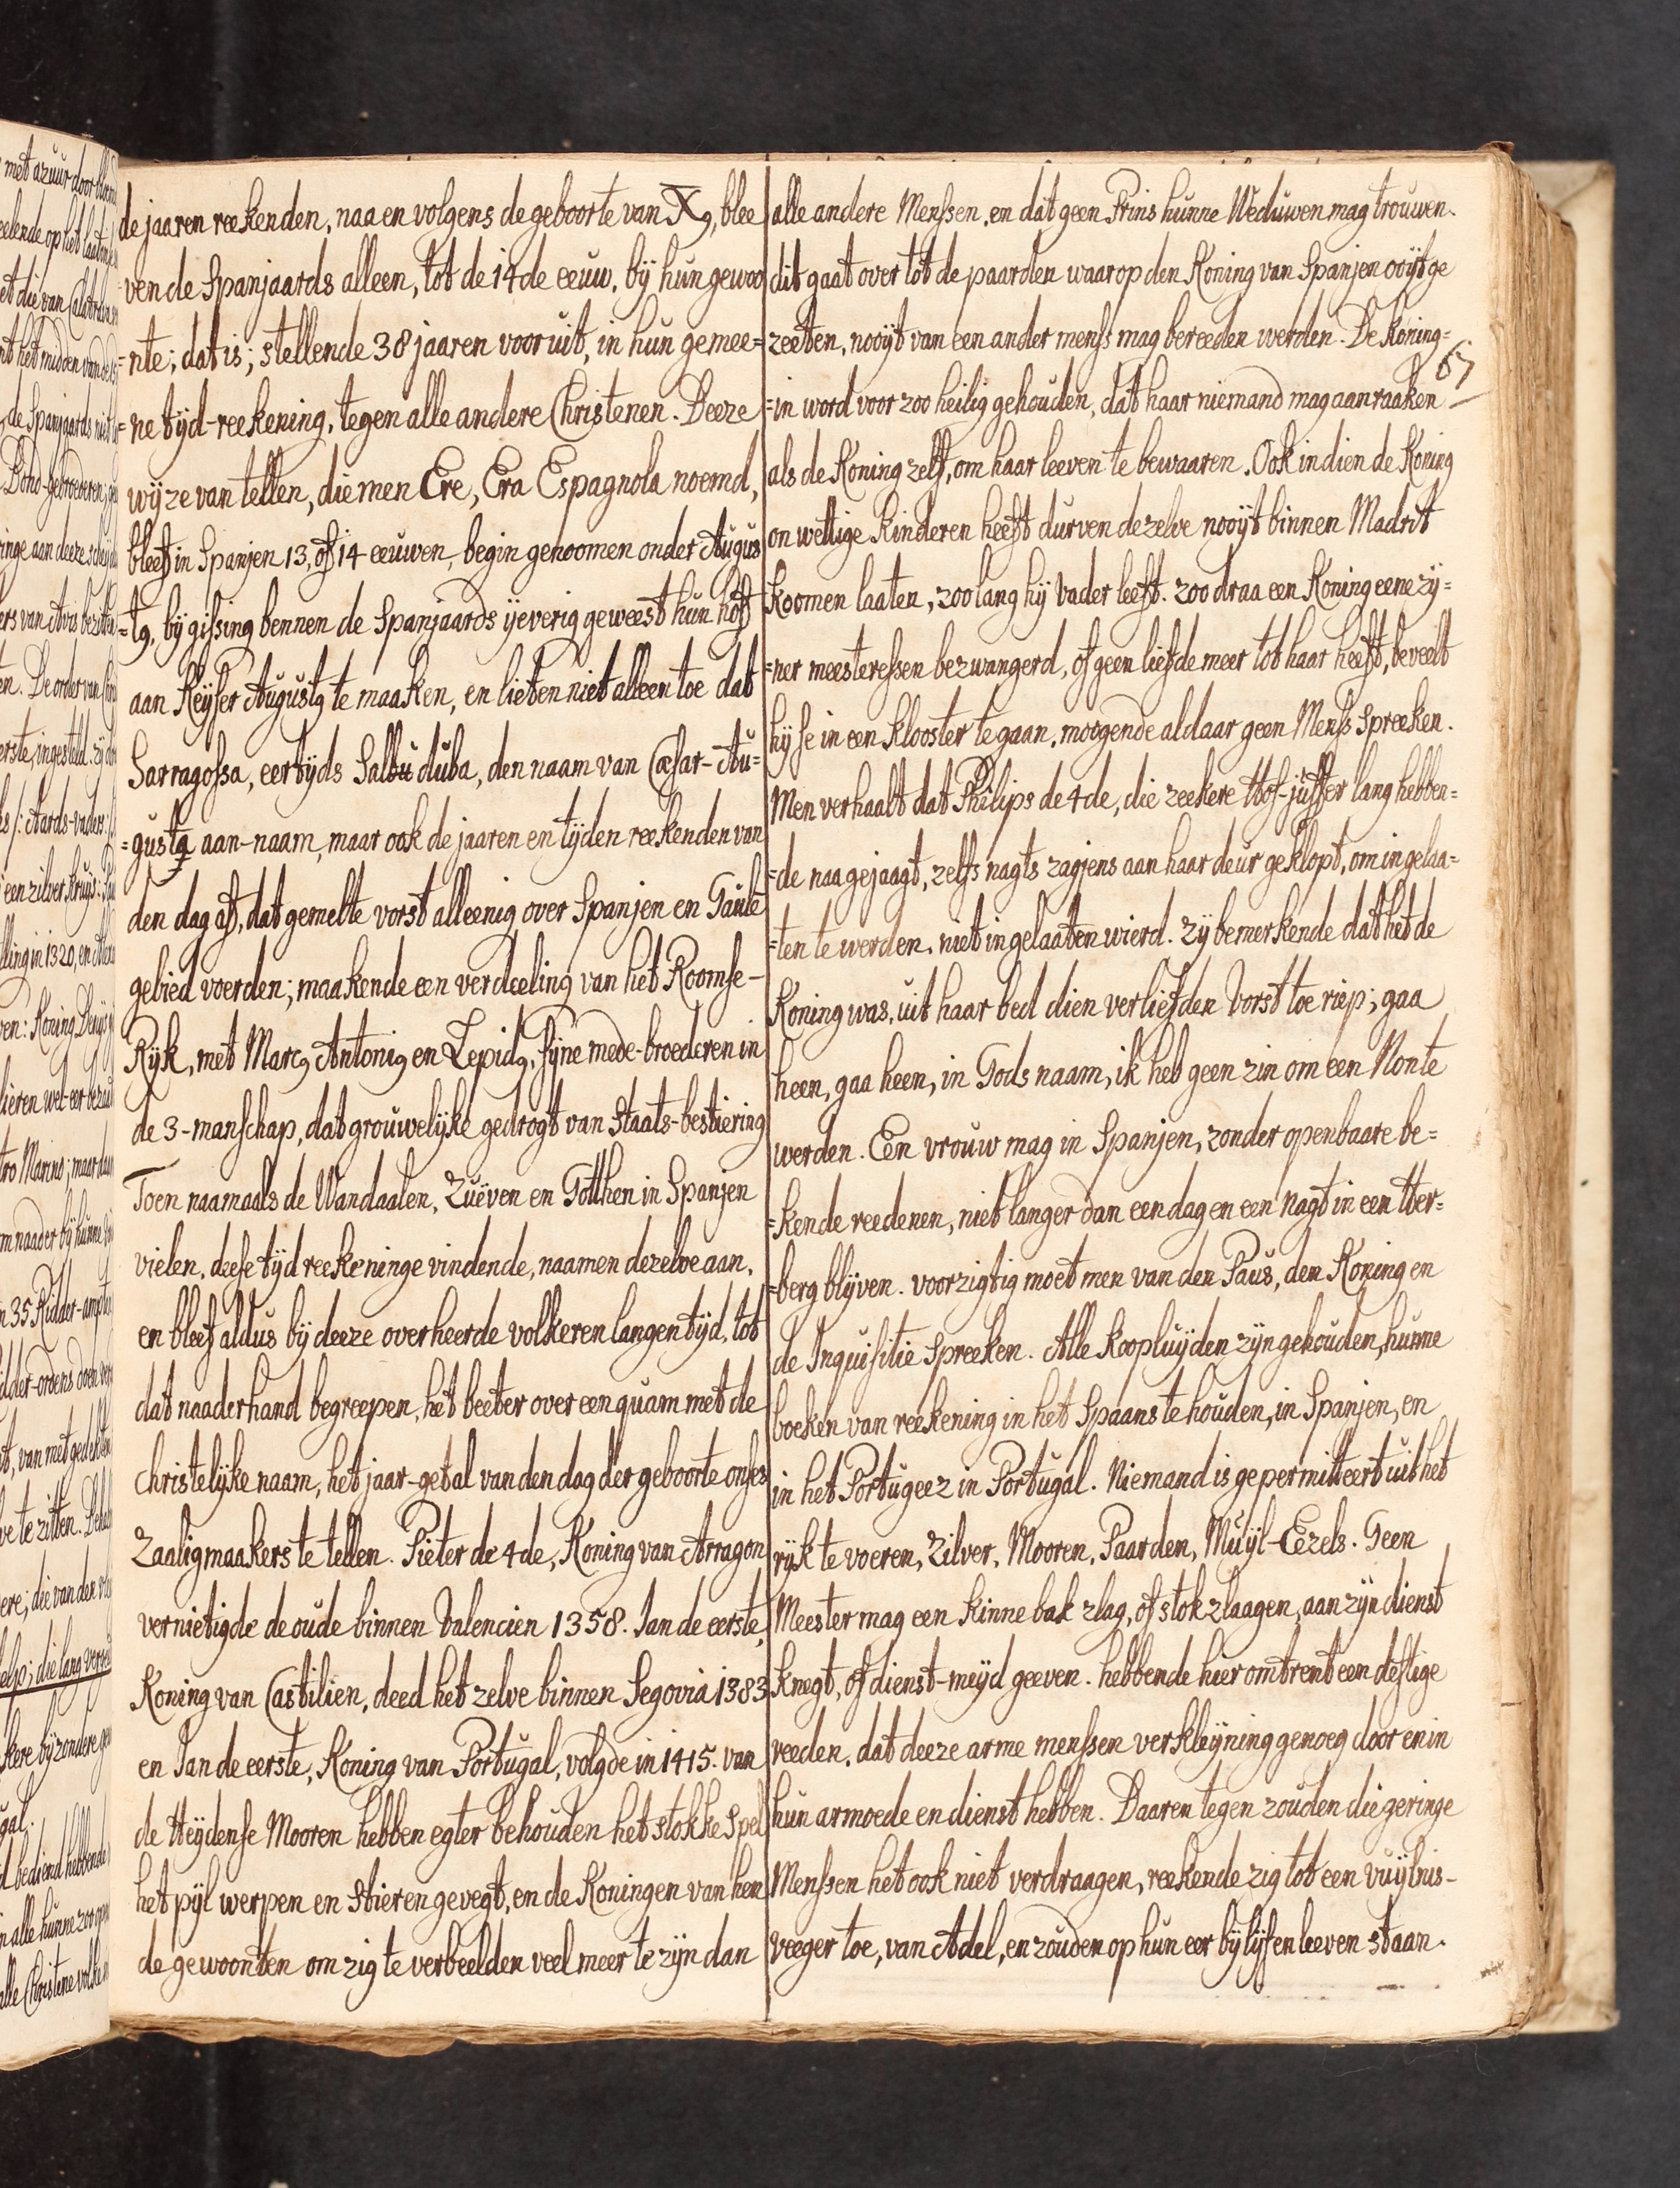 de jaaren reekenden, naa en volgens de geboorte van Xg, blee
ven de Spanjaards alleen, tot de 14de eeuw, bÿ hun gewoo
=nte; dat is; stellende 38 jaaren vooruit, in hun gemee=
=ne tÿd-reekening, tegen alle andere Christenen. Deeze
wÿze van tellen, die men Ere, Era Espagnola noemd,
bleef in Spanjen 13, of 14 eeuwen, begin genoomen onder Augus
=tg, bÿ gissing bennen de Spanjaards ÿeverig geweest hun hof
aan Keÿser Augustg te maaken, en lieten niet alleen toe dat
Sarragossa, eertÿds Salduduba, den naam van Cæsar-Au=
=gustg aan-naam, maar ook de jaaren en tÿden reekenden van
den dag af, dat gemelte vorst alleenig over Spanjen en Gaule
gebied voerden; maakende een verdeeling van het Roomse-
Rÿk, met Marcg Antonig en Lepidg, sÿne mede-broederen in
de 3-manschap, dat grouwelÿke gedrogt van Staats-bestiering
Toen naamaals de Wandaalen, Zuëven en Gotthen in Spanjen
vielen, deese tÿd reekeninge vindende, naamen dezelve aan,
en bleef aldus bÿ deeze overheerde volkeren langen tÿd, tot
dat naaderhand begreepen, het beeter over een quam met de
christelÿke naam, het jaar-getal van den dag der geboorte onses
Zaaligmaakers te tellen. Pieter de 4de, Koning van Arragon
vernietigde de oude binnen Valencien 1358. Jan de eerste,
Koning van Castilien, deed het zelve binnen Segovia 1383
en Jan de eerste, Koning van Portugal, volgde in 1415. van
de Heÿdense Mooren hebben egter behouden het stokke Spel
het pÿl werpen en Stieren gevegt, en de Koningen van hen
de gewoonten om zig te verbeelden veel meer te zÿn dan
alle andere Menssen. en dat geen Prins hunne Weduwen mag trouwen.
dit gaat over tot de paarden waar op den Koning van Spanjen ooÿt ge
zeeten, nooÿt van een ander menss mag bereeden werden. De Koning=
67
=in word voor zoo heilig gehouden, dat haar niemand mag aanraaken
als de Koning zelf, om haar leeven te bewaaren. Ook indien de Koning
onwettige Kinderen heeft durven dezelve nooÿt binnen Madrit
koomen laaten, zoo lang hÿ Vader leeft. zoo draa een Koning eene zÿ=
=ner meesteressen bezwangerd, of geen liefde meer tot haar heeft, beveelt
hÿ se in een klooster te gaan, moogende aldaar geen Menss spreeken.
Men verhaalt dat Philips de 4de, die zeekere Hof-juffer lang hebben=
=de naagejaagt, zelfs nagts zagjens aan haar deur geklopt, om ingelaa=
=ten te werden, niet ingelaaten wierd. zÿ bemerkende dat het de
Koning was, uit haar bed dien verliefden Vorst toe riep; gaa
heen, gaa heen, in Gods naam, ik heb geen zin om een Non te
werden. Een vrouw mag in Spanjen, zonder openbaare be=
=kende reedenen, niet langer dan een dag en een nagt in een Her=
=berg blÿven. voorzigtig moet men van den Paus, den Koning en
de Inquisitie Spreeken. Alle Koopluÿden zÿn gehouden, hunne
boeken van reekening in het Spaans te houden, in Spanjen, en
in het Portugeez in Portugal. Niemand is gepermitteert uit het
rÿk te voeren, Zilver, Mooren, Paarden, Muÿl-Eezels. Geen
Meester mag een kinnebak zlag, of stok zlaagen, aan zÿn dienst
knegt, of dienst-meÿd geeven. hebbende hier omtrent een deftige
reeden, dat deeze arme menssen verkleÿning genoeg door en in
hun armoede en dienst hebben. Daaren tegen zouden die geringe
Menssen het ook niet verdraagen, reekende zig tot een vuÿlnis-
veeger toe, van Adel, en zouden op hun eer bÿ lÿf en leeven staan.